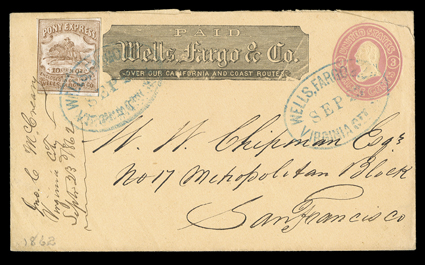 PONY EXPRESS
PAID
Wells, Fargo & Co.
OVER OUR CALIFORNIA AND COAST ROUTES
WELLS, FARGO
SEP
VIRGINIA CITY
SEP
VIRGINIA CITY
Jno. C. McCreary
Virginia City
Sept. 23d 1862
W. W. Chipman Esqr
No 17 Metropolitan Block
San Francisco
1862